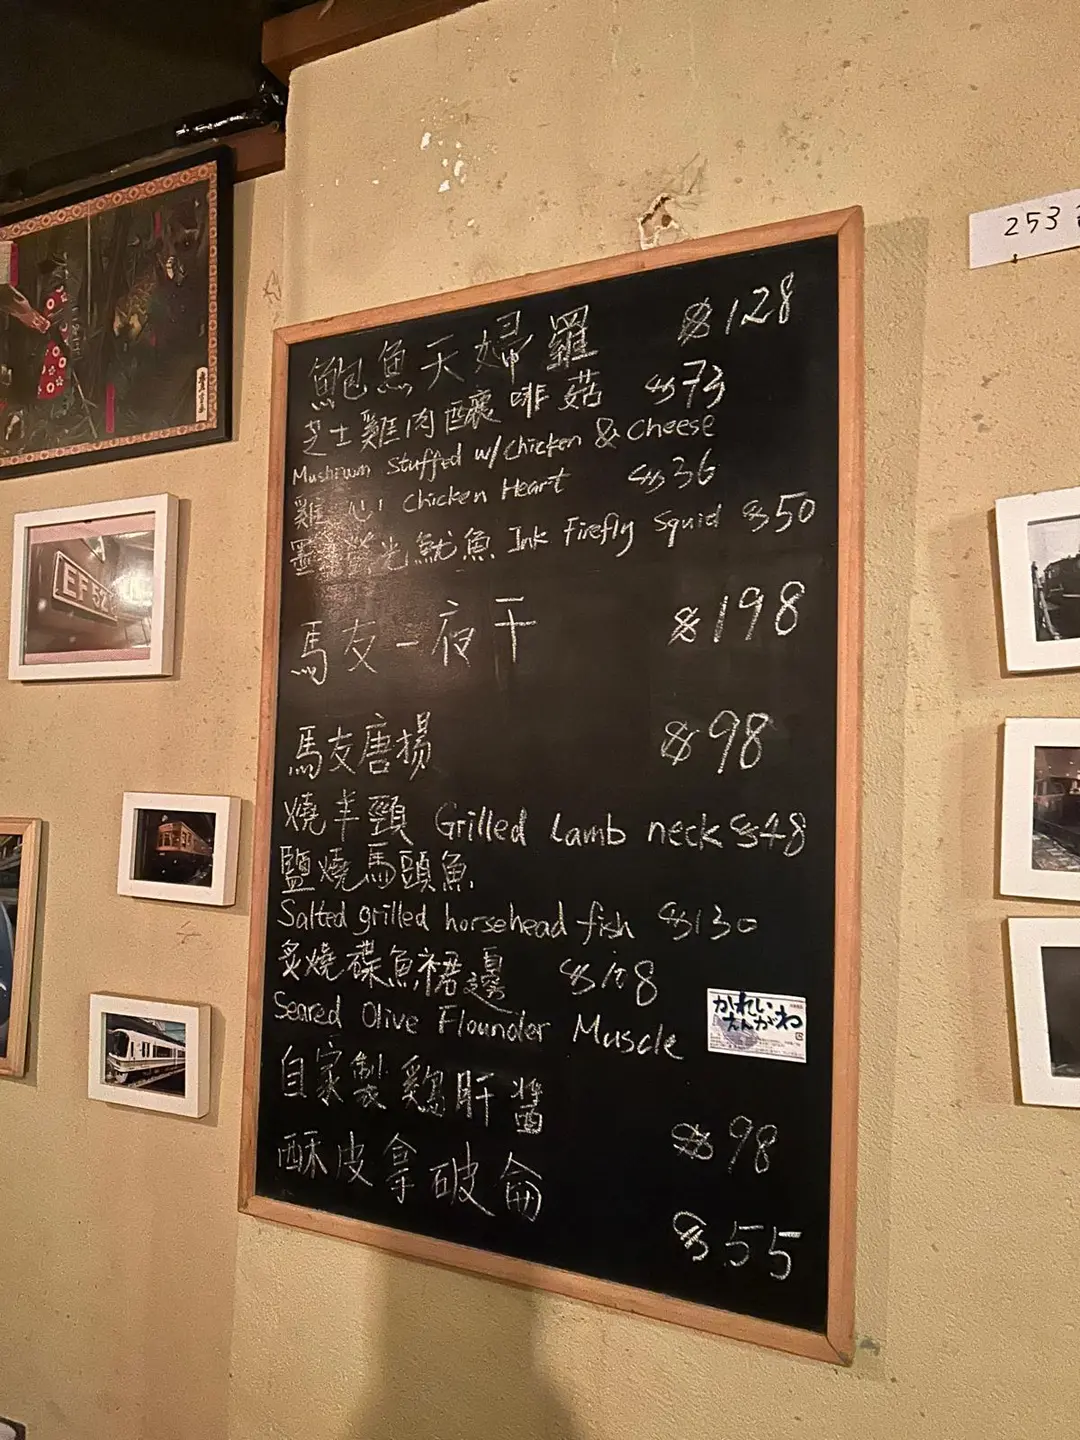 253
鮑魚天婦羅 $128
芝士雞肉釀啡菇 $73
Mushroom Stuffed w/Chicken & Cheese
雞心 Chicken Heart $36
墨 螢光魷魚 Ink Firefly Squid $50
馬友一夜干 $198
馬友唐揚 $98
燒羊頸 Grilled Lamb neck $48
鹽燒馬頭魚
Salted grilled horsehead fish $130
炙燒碟魚裙邊 $108
Seared Olive Flounder Muscle
かれい
えんがわ
自家製鷄肝醬 $98
酥皮拿破侖 $55
EF 52